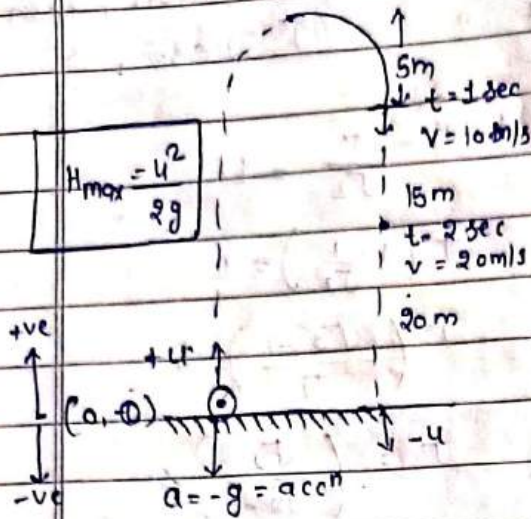 5m
t = 1 sec
v = 10 m/s
Hmax = u²
2g
15 m
t = 2 sec
v = 20 m/s
20 m
+ve
+u
(0, 0)
-u
-ve
a = -g = accⁿ